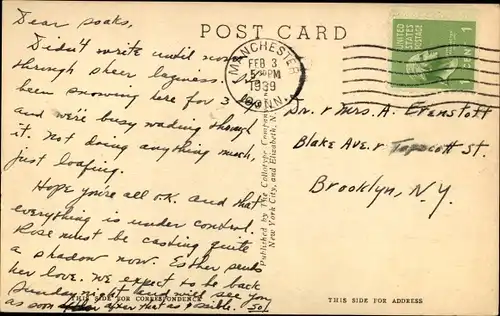 Dear soaks,
POST CARD
Didn't write until now
through sheer laziness. It's
been snowing here for 3
and we're busy wading through
it. Not doing anything much,
just loafing.
Hope you're all O.K. and that
everything is under control.
Rose must be casting quite
a shadow now. Esther sends
her love. We expect to be back
Sunday night and will see you
as soon after that as possible. Sol.
THIS SIDE FOR CORRESPONDENCE
Published by The Collotype Company
New York City, and Elizabeth, N.
MANCHESTER
FEB 3
PM
1939
CONN.
UNITED
STATES
POSTAGE
1
CENT
Dr. & Mrs. A. Evenstott
Blake Ave. & Tapscott St.
Brooklyn, N.Y.
THIS SIDE FOR ADDRESS